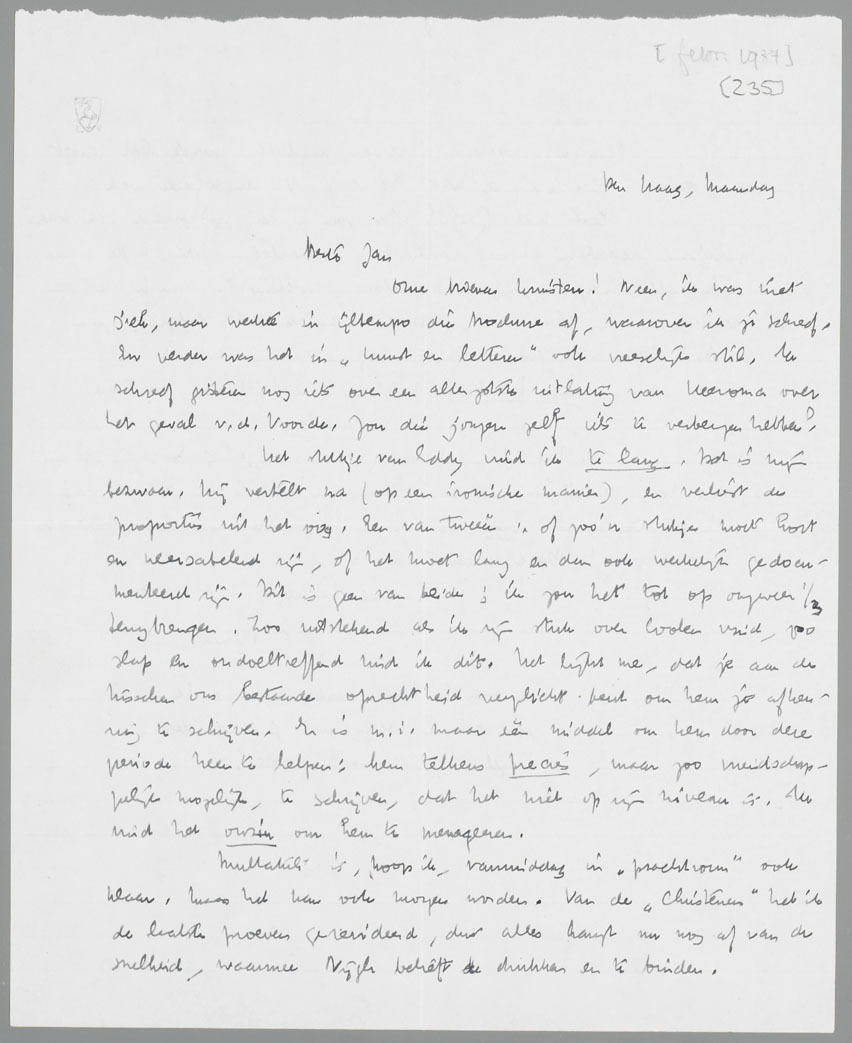 [febr. 1937]
[235]
Den Haag, Maandag
Beste Jan
Onze brieven kruisten! Neen, ik was niet
ziek, maar werkte in ijltempo die brochure af, waarover ik je schreef.
En verder was het in "kunst en letteren" ook vreeselijk stil. Ik
schreef gisteren nog iets over een allerzotste uitlating van Heeroma over
het geval v.d. Voorde. Zou die jongen zelf iets te verbergen hebben?
Het stukje van Eddy vind ik te lang. Dat is mijn
bezwaar. Hij vertelt na (op een ironische manier), en verliest de
proporties uit het oog. Een van tweeën: of zoo'n stukje moet kort
en neersabelend zijn, of het moet lang en dan ook werkelijk gedocu-
menteerd zijn. Dit is geen van beide; ik zou het tot op ongeveer 1/3
terugbrengen. Zoo uitstekend als ik zijn stuk over Coolen vind, zoo
slap en ondoeltreffend vind ik dit. Het lijkt me, dat je aan de
tusschen ons bestaande oprechtheid verplicht bent om hem je afkeu-
ring te schrijven. Er is m.i. maar één middel om hem door deze
periode heen te helpen: hem telkens precies, maar zoo vriendschap-
pelijk mogelijk, te schrijven, dat het niet op zijn niveau is. Ik
vind het onzin om hem te menageeren.
Multatuli is, hoop ik, vanmiddag in "prachtvorm" ook
klaar. Maar het kan ook morgen worden. Van de "Christenen" heb ik
de laatste proeven gerevideerd, dus alles hangt nu nog af van de
snelheid, waarmee Nijgh belieft te drukken en te binden.